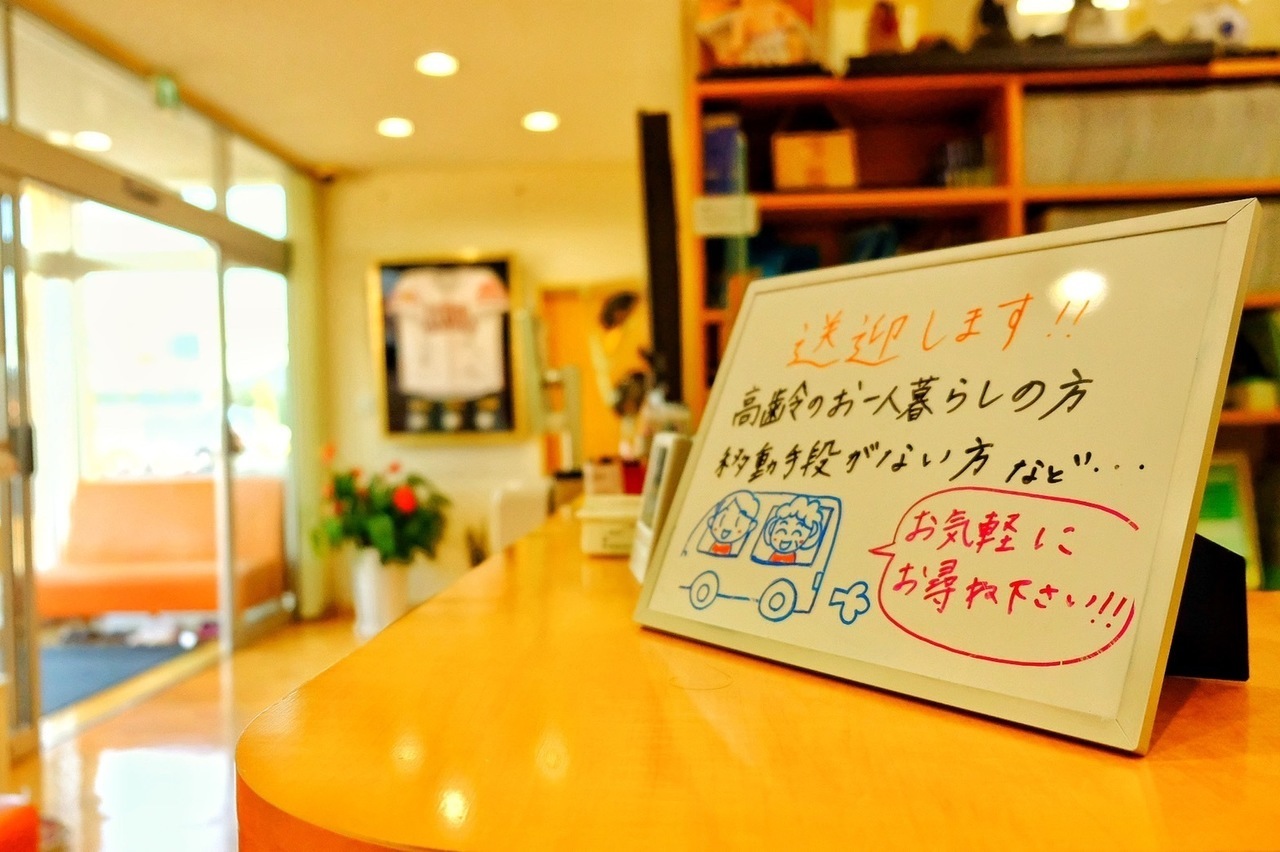 送迎します!!
高齢令のお一人暮らしの方
移動手段がない方 など…
お気軽に
お尋ね下さい!!